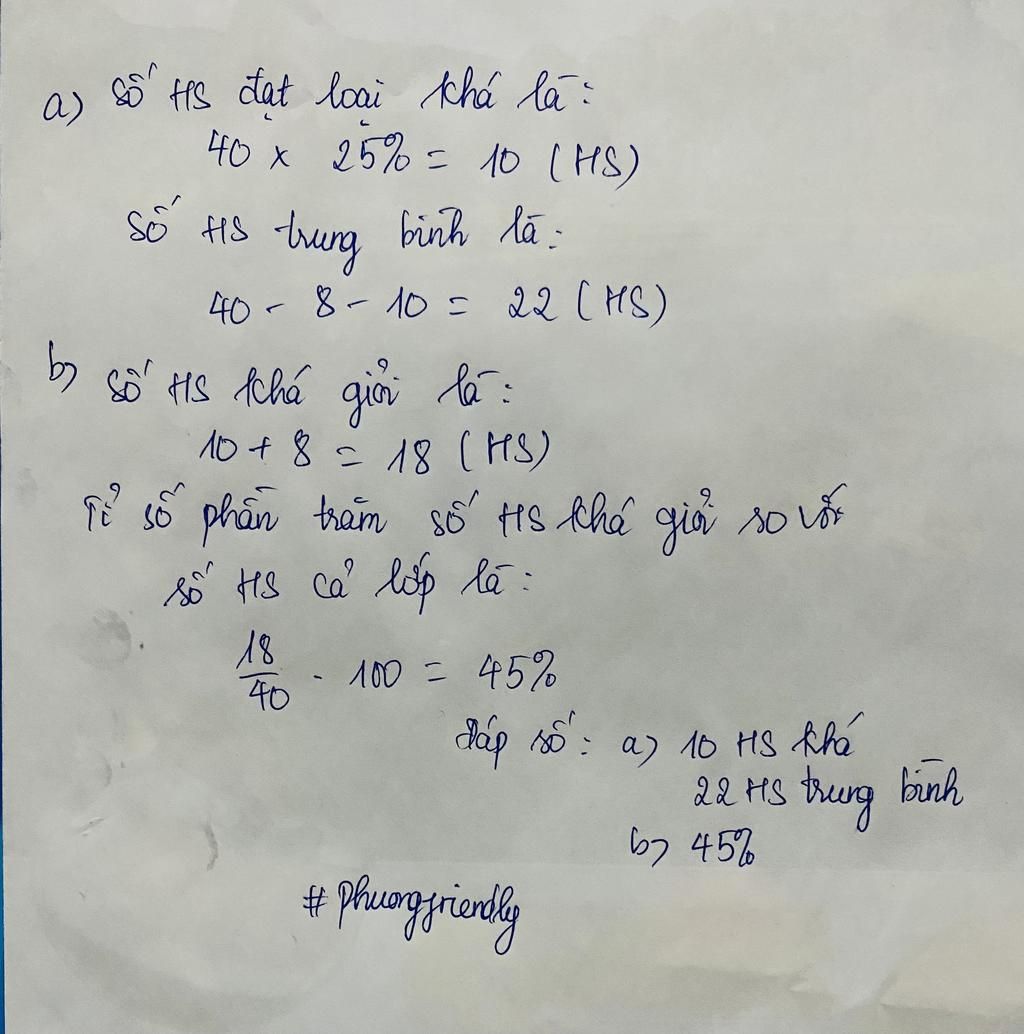 a) Số HS đạt loại khá là:
40 x 25% = 10 (HS)
Số HS trung bình là:
40 - 8 - 10 = 22 (HS)
b) Số HS khá giỏi là:
10 + 8 = 18 (HS)
Tỉ số phần trăm số HS khá giỏi so với
số HS cả lớp là:
18/40 . 100 = 45%
Đáp số: a) 10 HS khá
22 HS trung bình
b) 45%
# phuongfriendly